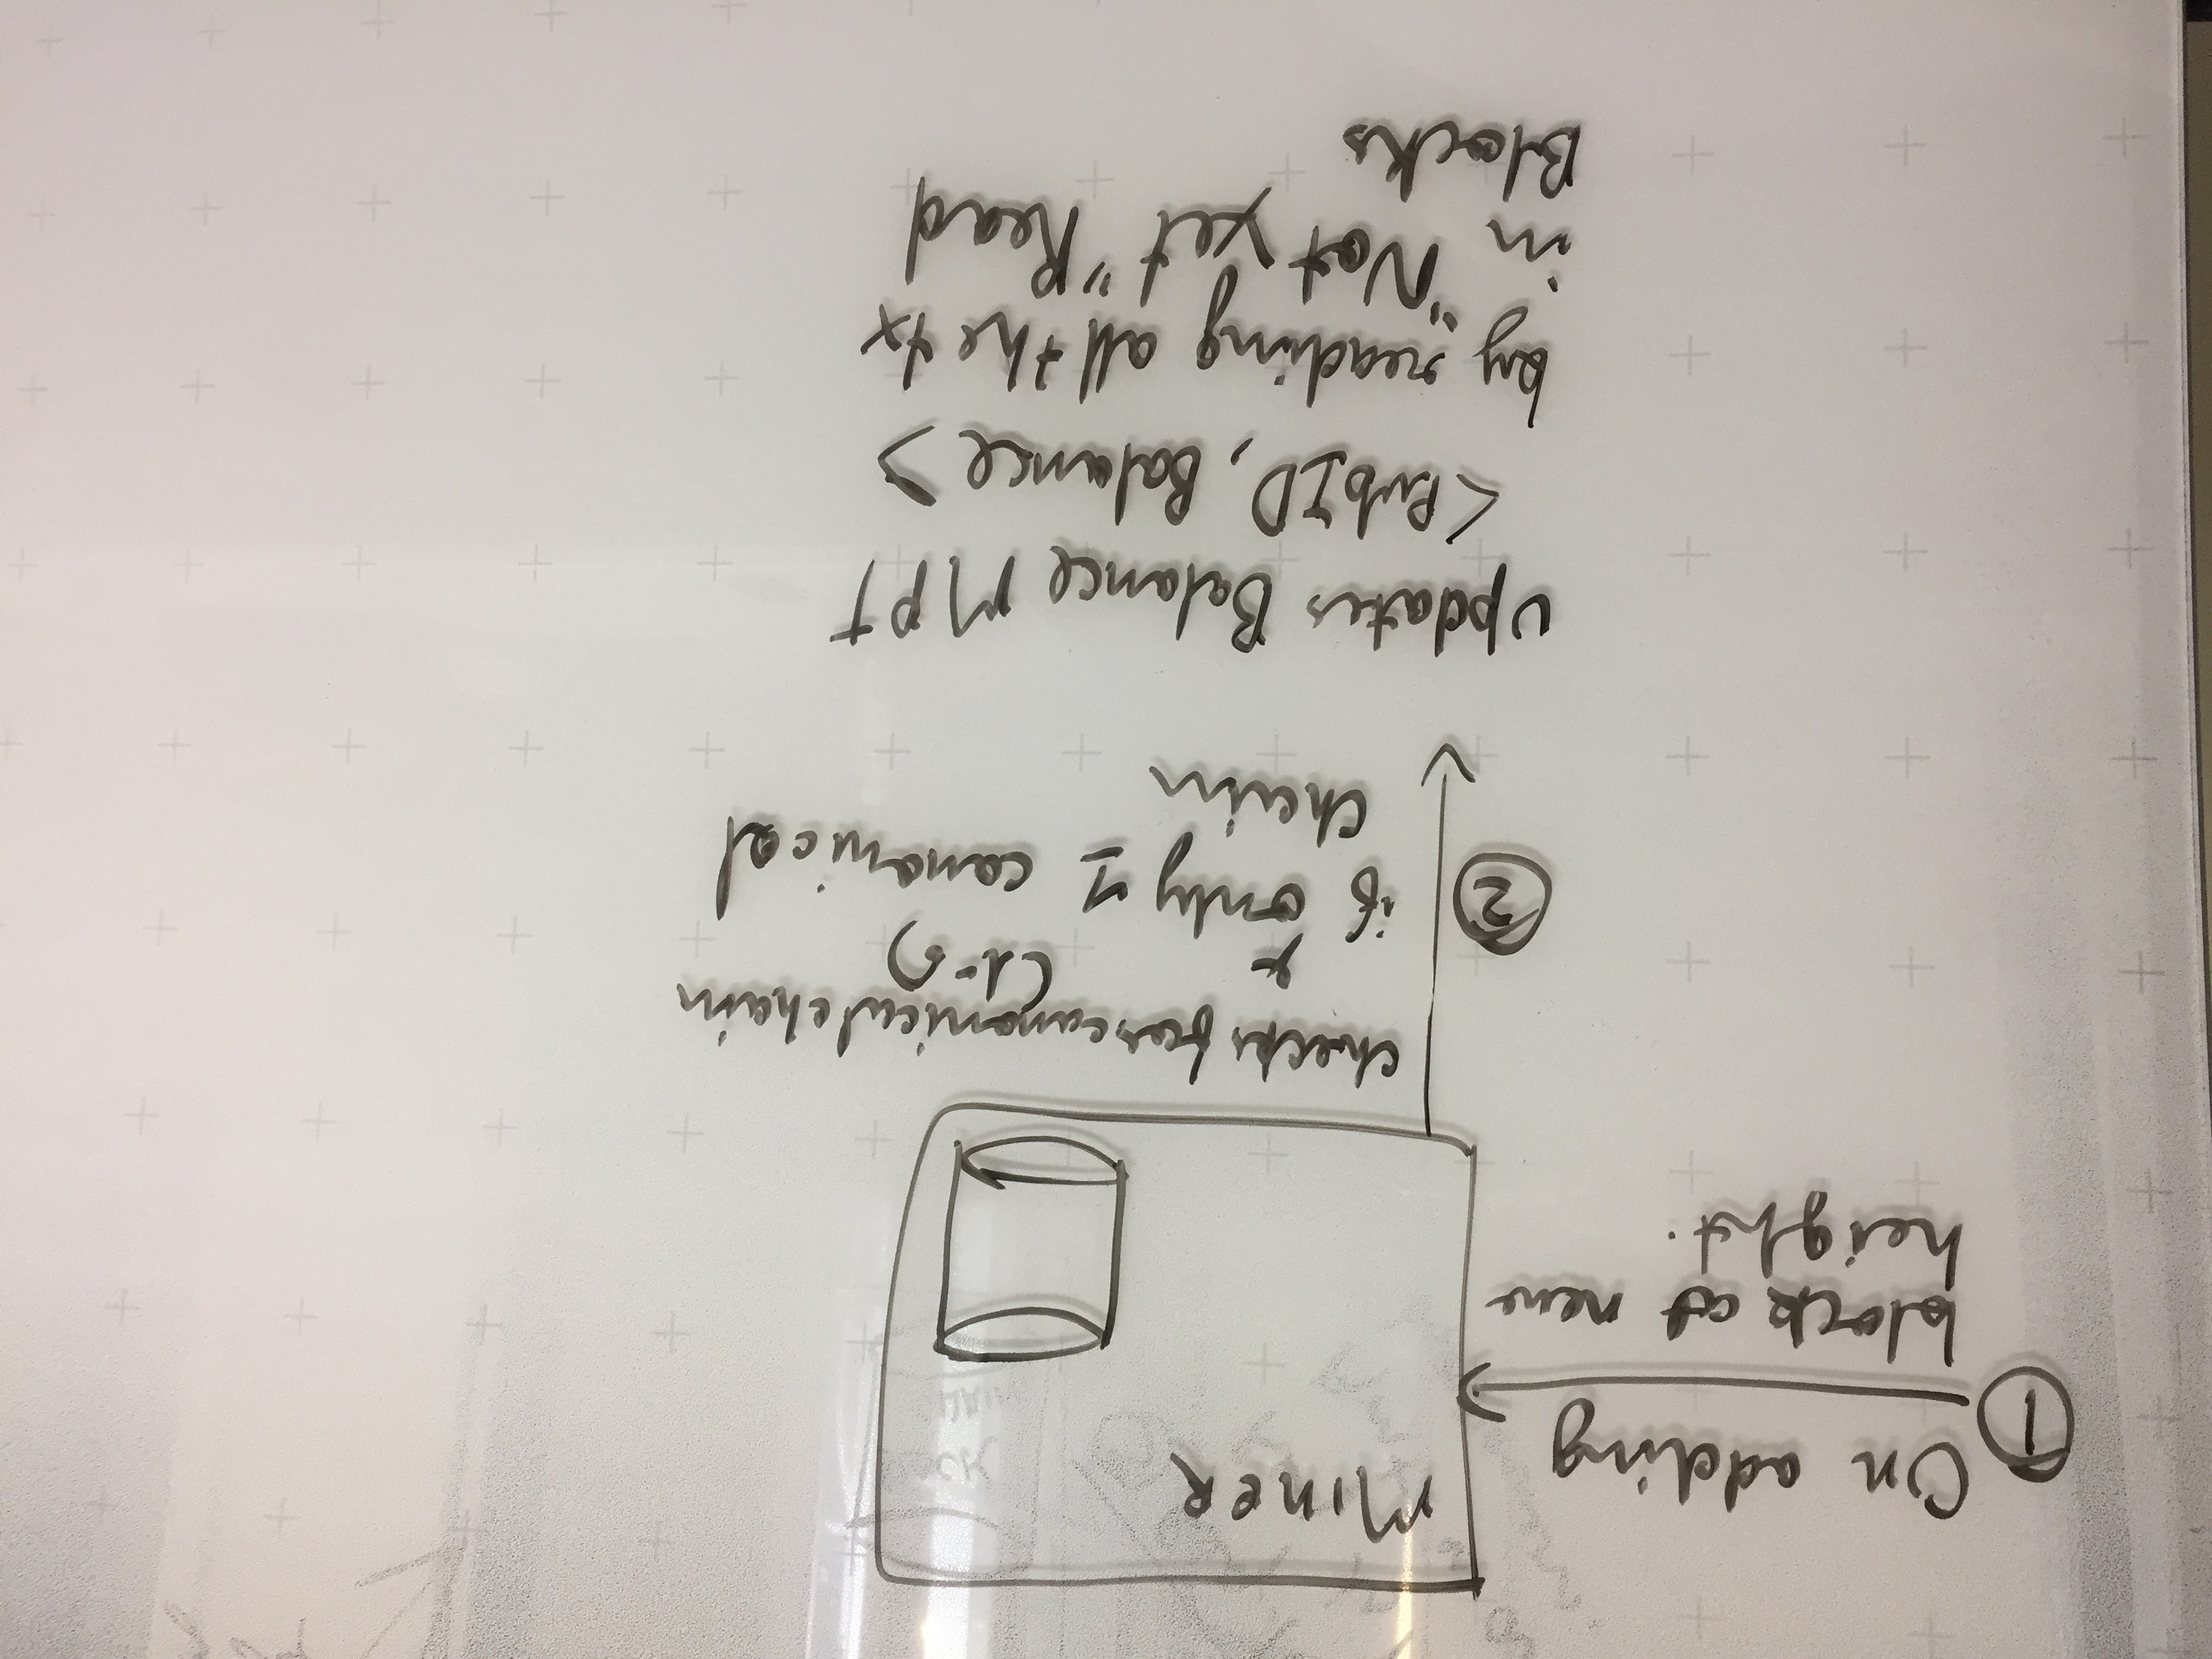 Miner
① On adding
block at new
height.
checks for canonical chain
&
② if only 1 canonical
chain
updates Balance MPT
<PubID, Balance>
by reading all the tx
in "Not yet" Read
Blocks